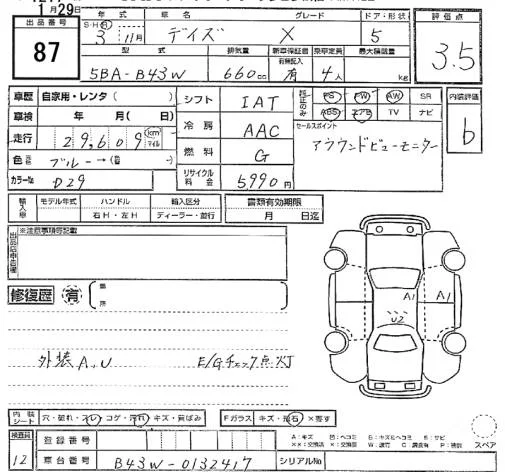 1月29日
出品番号 年式 車名 グレード ドア・形状 評価点
87 S・H・R 3年 11月 デイズ X 5 3.5
型式 排気量 新車保証書 乗車定員 最大積載量
有無記入
5BA-B43W 660cc 有 4人 kg
車歴 自家用・レンタ( ) シフト IAT 純正のみ PS PW AW SR 内装評価
車検 年 月( 日) 冷房 AAC ABS エアB TV ナビ b
走行 29,609 km マイル 燃料 G セールスポイント
アラウンドビューモニター
色 ブルー→( )
カラーNo D29 リサイクル料金 5,990円
輸入車 モデル年式 ハンドル 輸入区分 書類有効期限
右H・左H ディーラー・並行 月 日迄
出品店申告欄 ※注意事項等記載
修復歴 有
A1 A1
U2
外装 A,U E/Gチェック点灯
内装シート 穴・破れ・スレ コゲ・汚れ キズ・黄ばみ Fガラス キズ・飛石 ×要す
A:キズ U:ヘコミ B:キズ&ヘコミ S:サビ
XX:交換済 X:要交換 W:波 C:腐食有 P:
スペア
検査員 12 登録番号
車台番号 B43W-0132417 シリアルNo